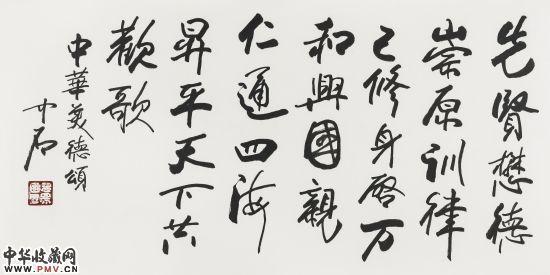 先贤懋德
崇原训律
己修身启万
和兴国亲
仁通四海
昇平天下共
欢歌
中华美德颂
中石
中华收藏网
WWW.PMV.CN